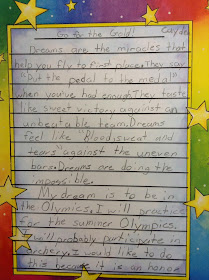 Go for the Gold!
Dreams are the miracles that
help you fly to first place. They say
"put the pedal to the medal"
when you've had enough. They taste
like sweet victory against an
unbeatable team. Dreams
feel like "Blood, sweat and
tears" against the uneven
bars. Dreams are doing the
impossible.
My dream is to be in
the Olymics. I will practice
for the summer Olympics.
I will probably participate in
archery. I would like to do
this because it is an honor